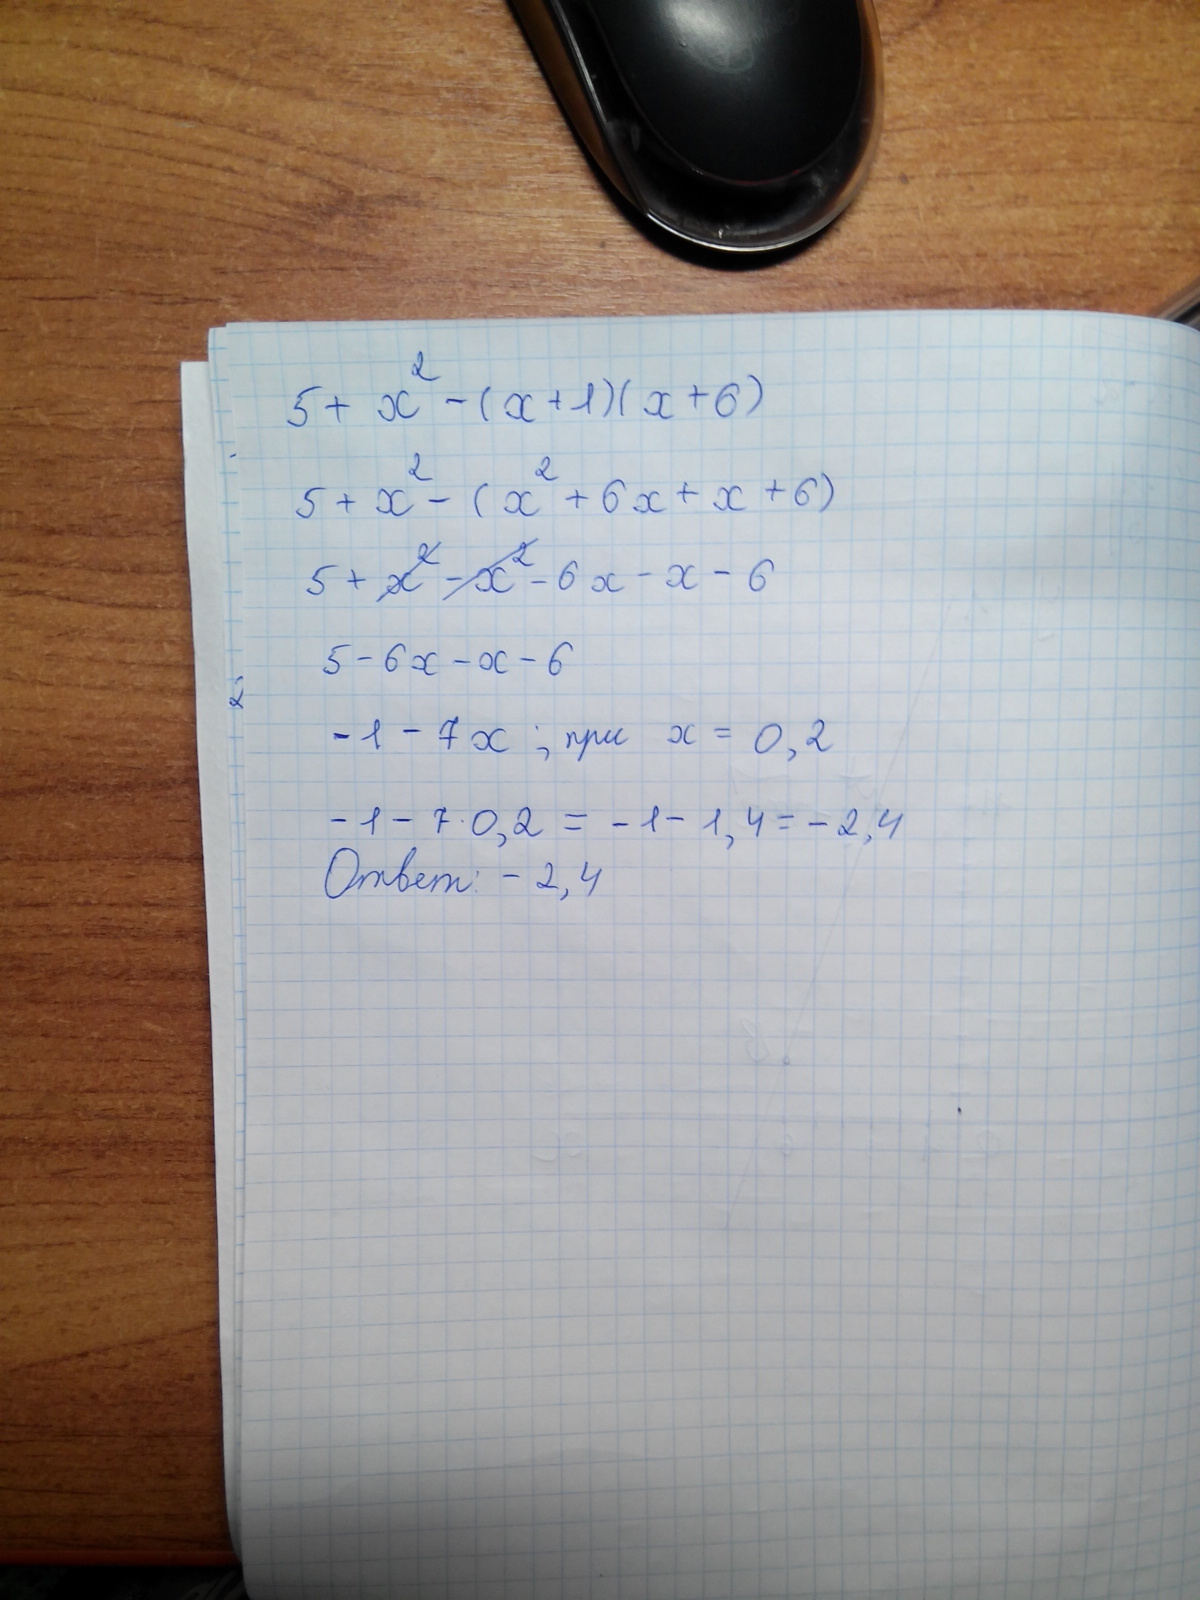 5 + x² - (x+1)(x+6)
5 + x² - (x² + 6x + x + 6)
5 + x² - x² - 6x - x - 6
5 - 6x - x - 6
-1 - 7x ; при x = 0,2
-1 - 7·0,2 = -1 - 1,4 = -2,4
Ответ: -2,4